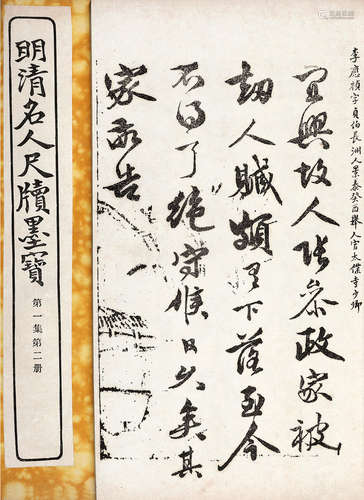 李應禎字貞伯長洲人景泰癸酉舉人官太僕寺少卿
宜興故人張參政家被
劫人贓頗有下落至今
不得了絕守候日久矣其
家來告
明清名人尺牘墨寶
第一集第二册